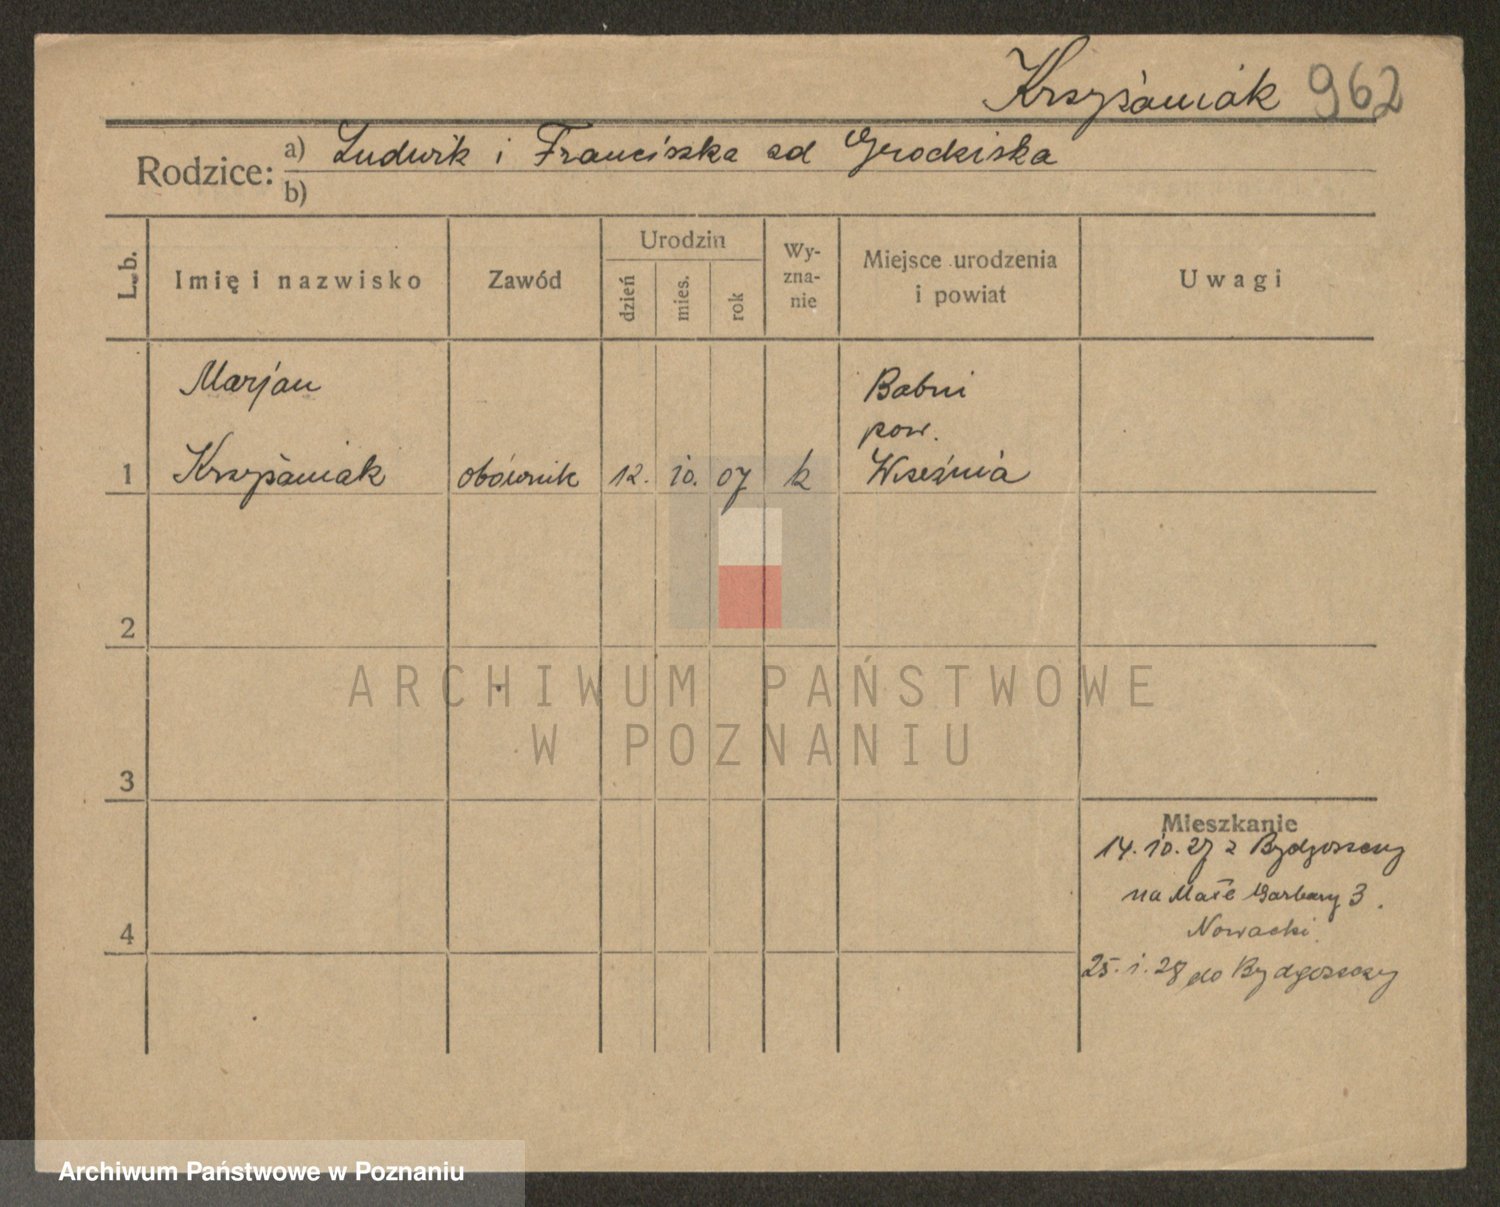 Krzyżaniak 962
Rodzice: a) Ludwik i Franciszka zd Grodziska
b)
L. b.
Imię i nazwisko
Zawód
Urodzin
dzień
mies.
rok
Wy-
zna-
nie
Miejsce urodzenia
i powiat
Uwagi
Marjan
Krzyżaniak
1
obównik
12. 10. 07
k
Babni
pow.
Września
2
3
4
Mieszkanie
14. 10. 27 z Bydgoszczy
na Małe Garbary 3.
Nowacki
25. 1. 28 do Bydgoszczy
ARCHIWUM PAŃSTWOWE
W POZNANIU
Archiwum Państwowe w Poznaniu